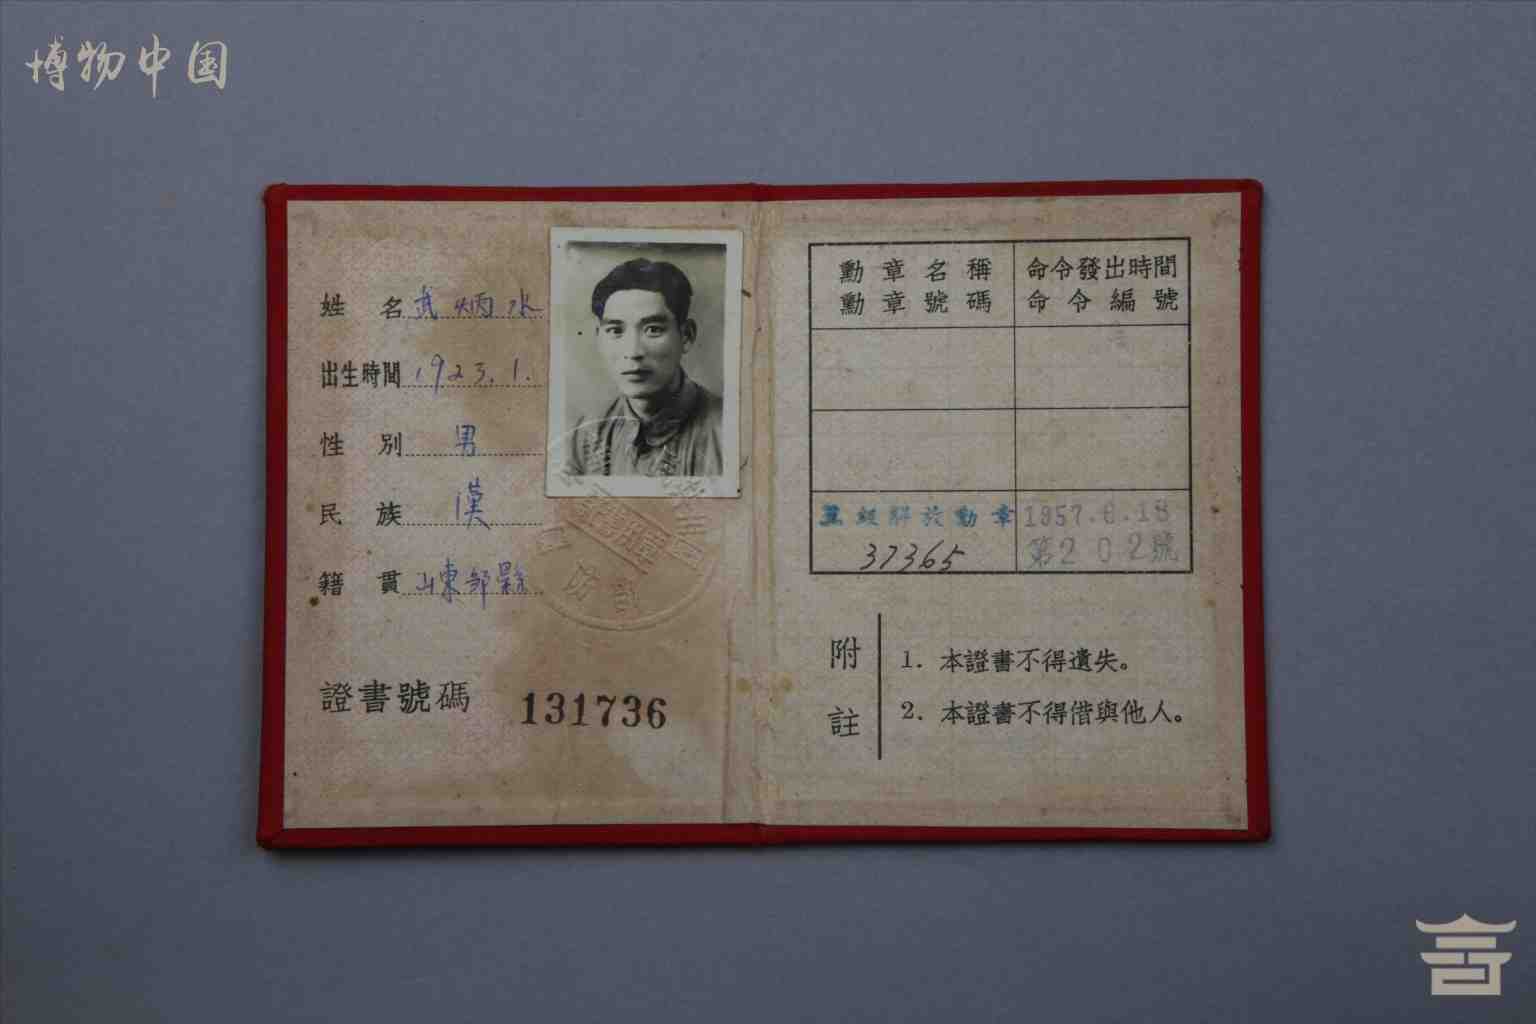 博物中国
姓名 武炳水
出生時間 1923.1.
性別 男
民族 漢
籍貫 山東鄒縣
證書號碼 131736
勳章名稱 命令發出時間
勳章號碼 命令編號
級解放勳章 1957.6.18
37365 第202號
附註
1. 本證書不得遺失。
2. 本證書不得借與他人。